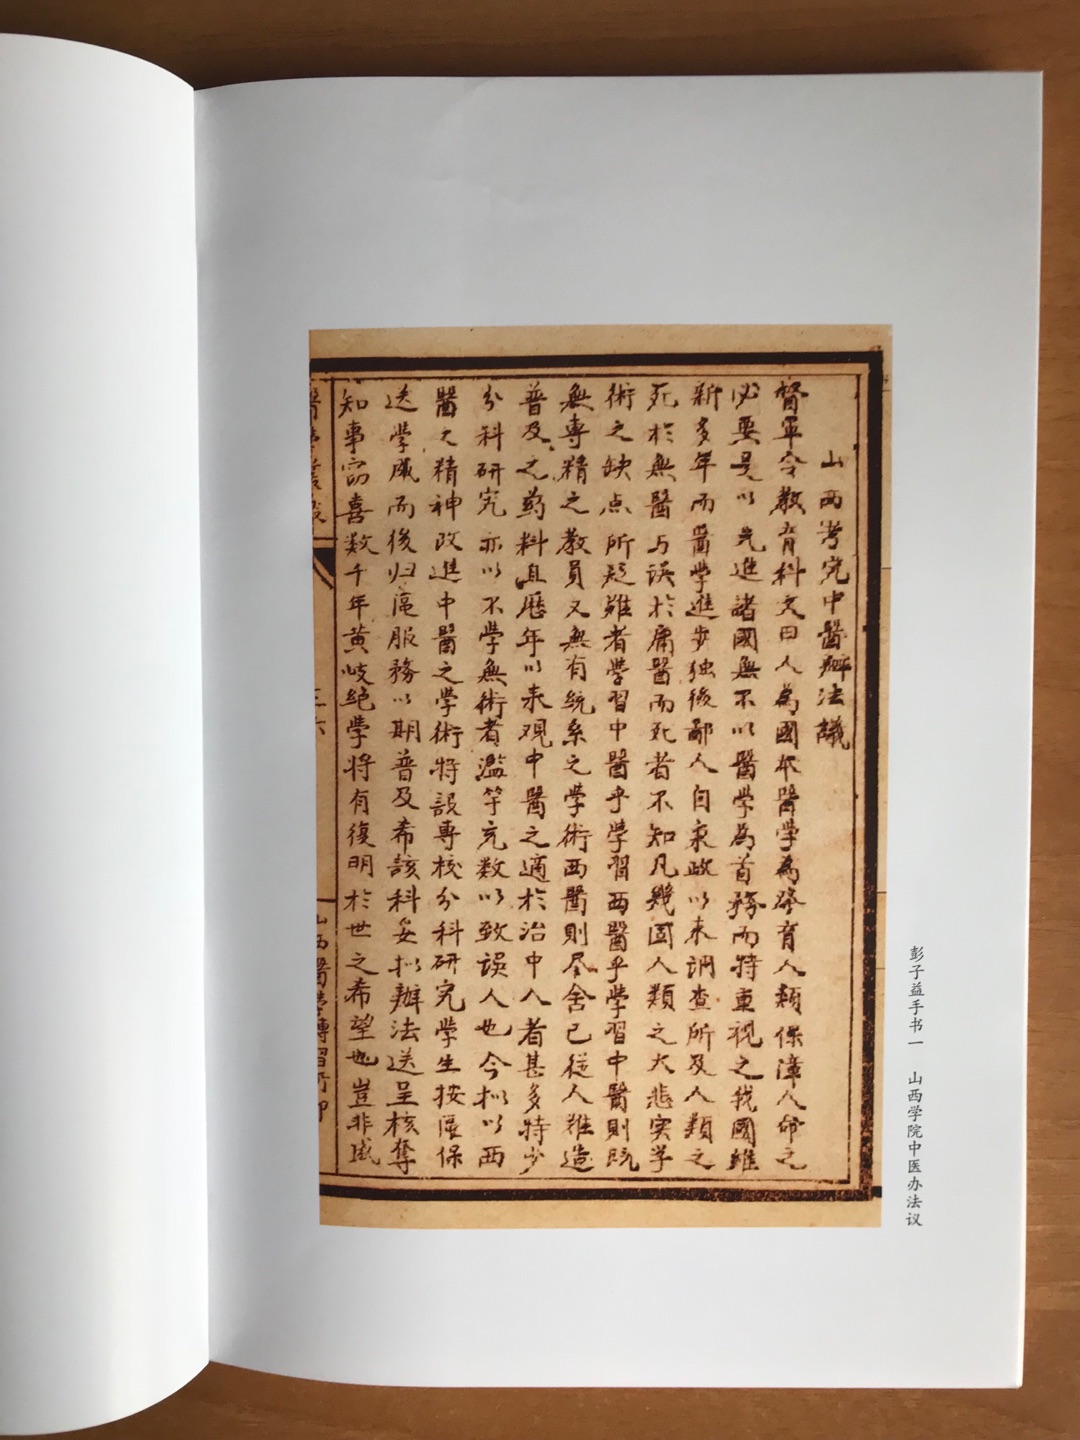 山西考究中醫辦法議
督軍令教育科文曰人為國本醫學為發育人類保障人命之
必要是以先進諸國無不以醫學為首務而特重視之我國維
新多年而醫學進步独後鄙人自秉政以来調查所及人類之
死於無醫与误於庸醫而死者不知凡幾固人類之大悲实学
術之缺点所疑难者学習中醫乎学習西醫乎学習中醫則既
無專精之教員又無有統系之学術西醫則尽舍己從人难造
普及之药料且歷年以来观中醫之適於治中人者甚多特少
分科研究亦以不学無術者濫竽充数以致误人也今拟以西
醫之精神改進中醫之学術特設專校分科研究学生按區保
送学成而後归區服務以期普及希該科妥拟辦法送呈核奪
知事窃喜数千年黃岐絕学将有復明於世之希望也豈非盛
三六
山西醫學傳習所印
彭子益手书一 山西学院中医办法议